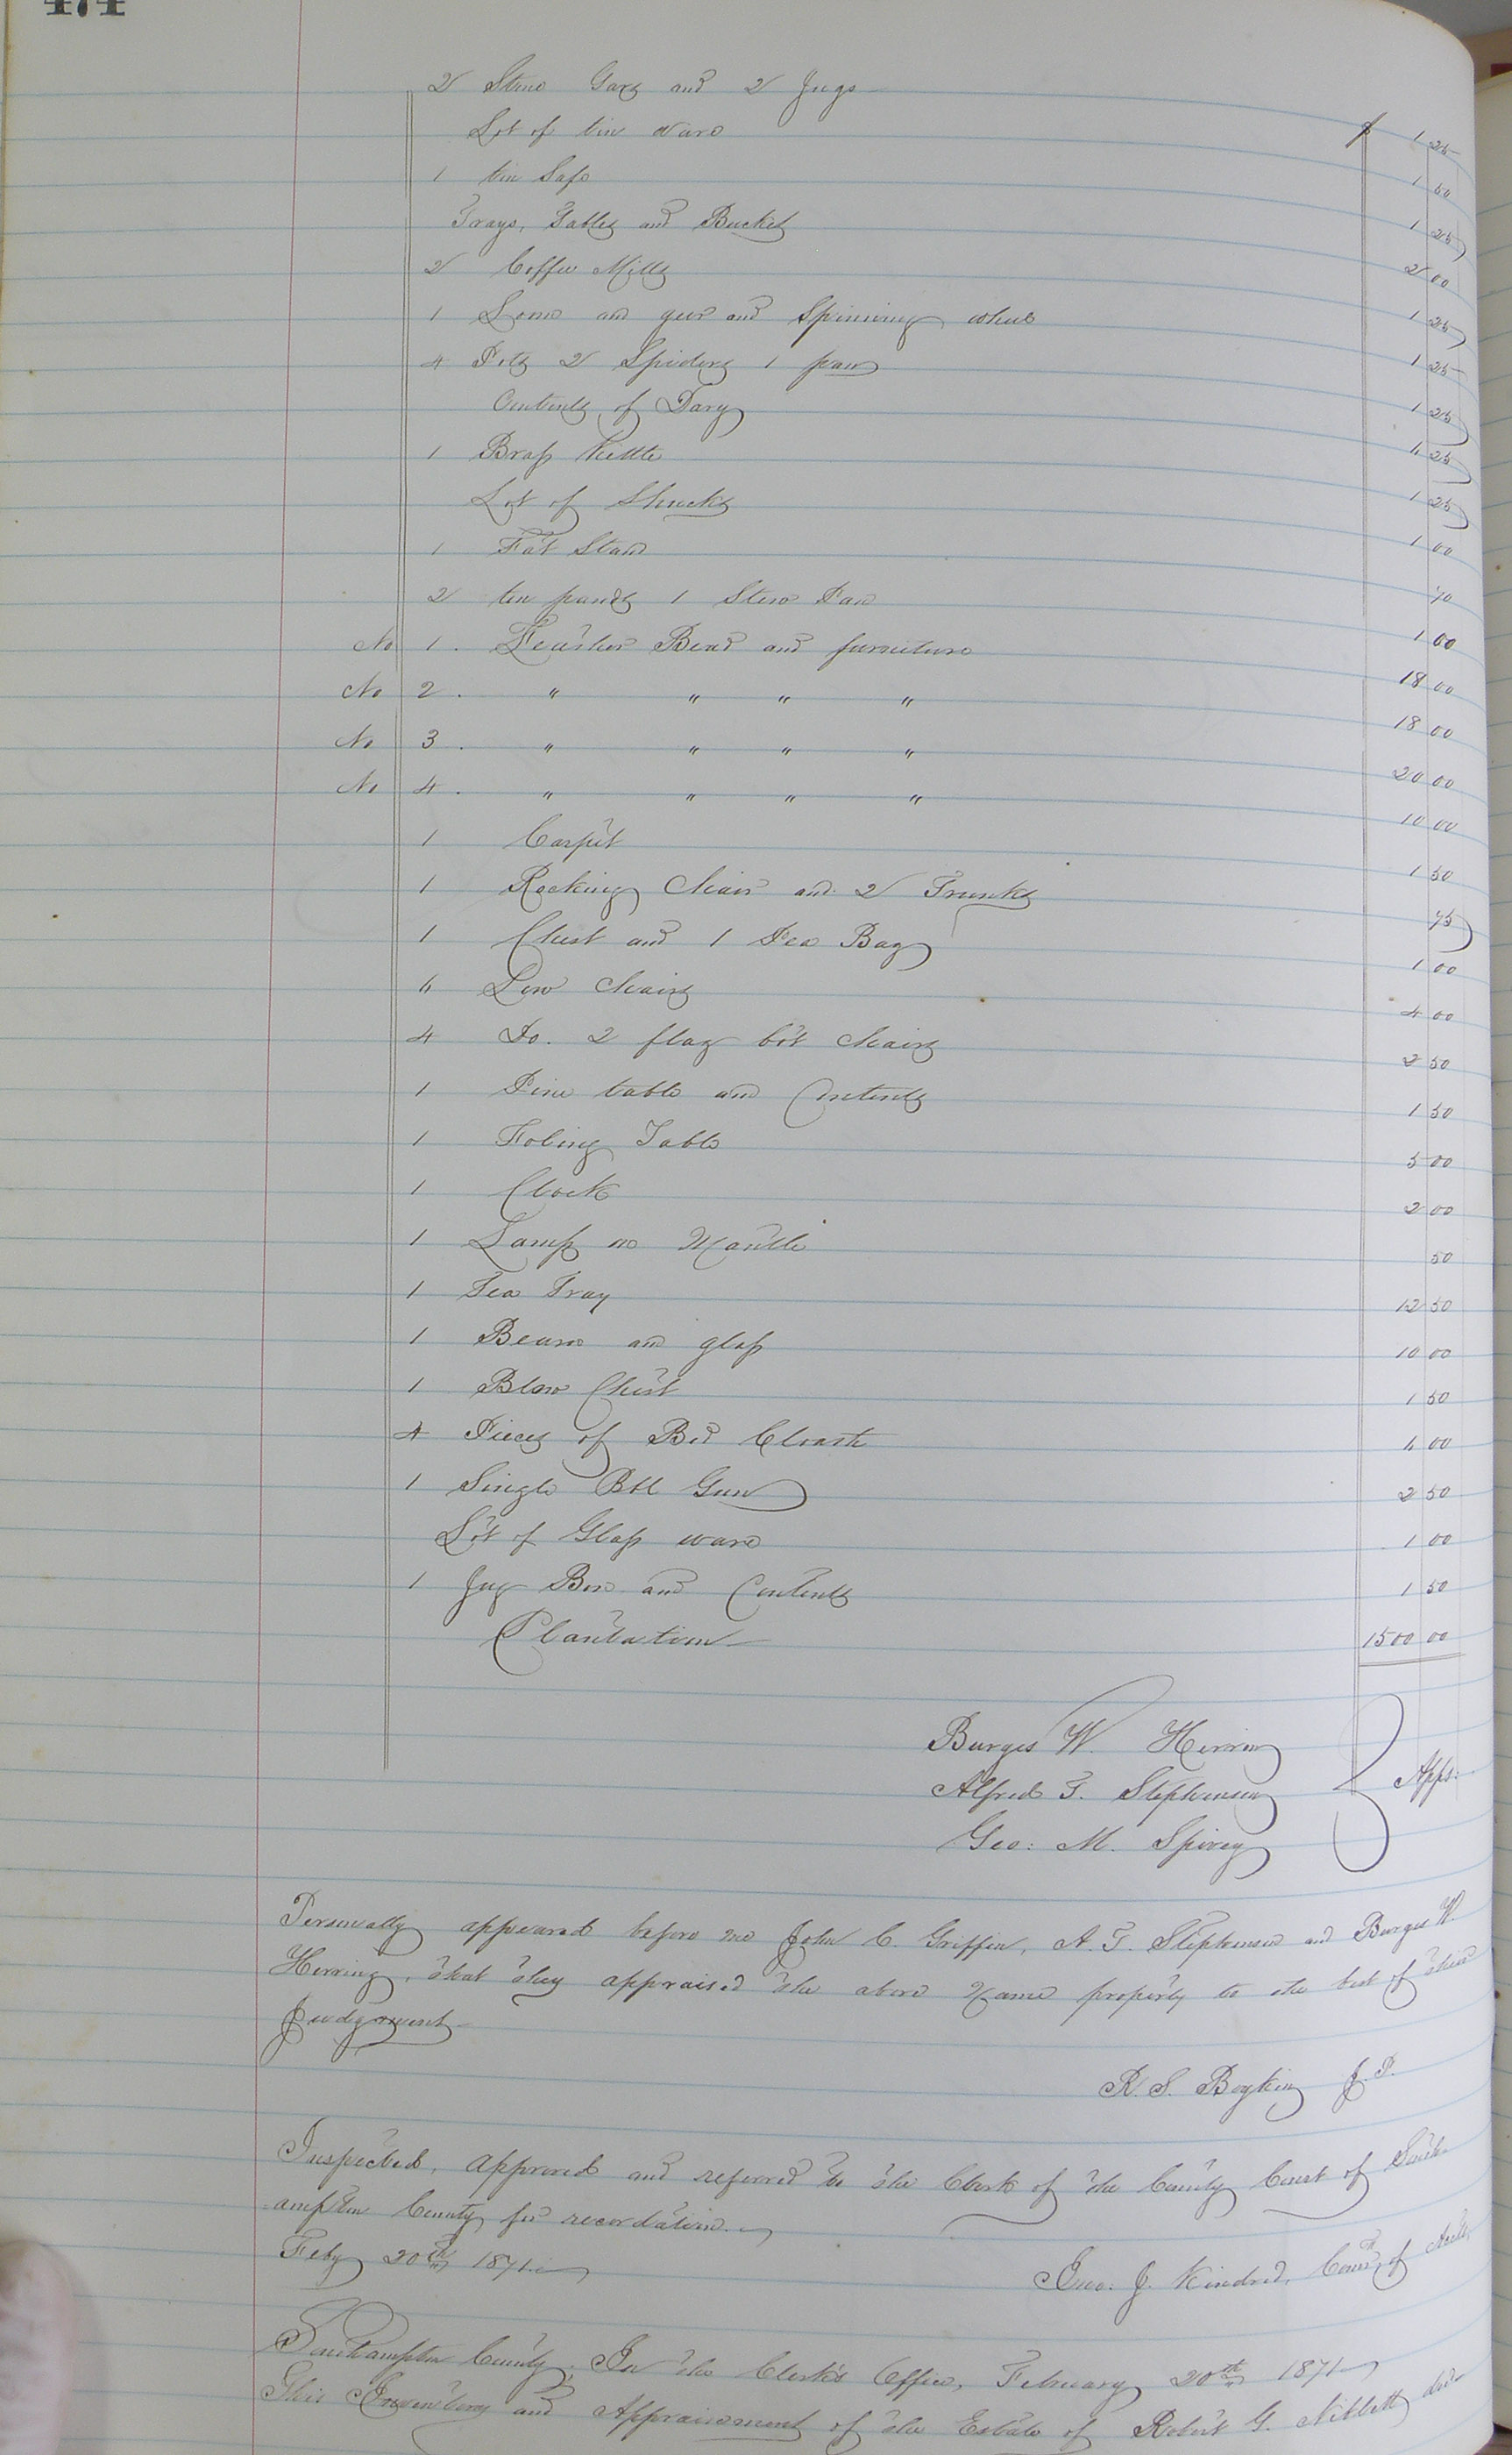 474
2 Stone Garz and 2 Jugs $ 1 25
Lot of tin ware 1 50
1 tin Safe 1 25
Trays, Tables and Bucket 2 00
2 Coffee Mills 1 25
1 Lome and geer and Spinning wheel 1 25
4 Pots 2 Spiders 1 pan 1 25
Contents of Dary 6 25
1 Brass Kittle 1 25
Lot of Shucks 1 00
1 Fat Stand 70
2 tin pands 1 Stew Pan 1 00
No 1. Feather Bead and furniture 18 00
No 2. " " " " 18 00
No 3. " " " " 20 00
No 4. " " " " 10 00
1 Carpit 1 50
1 Rocking Chair and 2 Trunks 75
1 Chest and 1 Pea Bag 1 00
6 Low Chairs 4 00
4 Do. 2 flag bot Chairs 2 50
1 Pine table and Contents 1 50
1 Foling Table 5 00
1 Clock 2 00
1 Lamp on Mantle 50
1 Tea Tray 12 50
1 Beuro and glass 10 00
1 Blew Chest 1 50
4 Pieces of Bed Cloath 6 00
1 Single Bbl Gun 2 50
Lot of Glass ware 1 00
1 Jug Box and Contents 1 50
Plantation 1500 00
Burges W. Herring
Alfred T. Stephenson Apps:
Geo: M. Spivey
Personally appeared before me John C. Griffin, A. T. Stephenson and Burges W.
Herring, that they appraised the above Name property to the best of their
Judgement
R. S. Boykin J. P.
Inspected, approved and referred to the Clerk of the County Court of South-
-ampton County for recordation.
Feby 20th 1871.
Jno: J. Kindred, Comr of Accts
Southampton County. In the Clerk's Office, February 20th 1871
This Inventory and Appraisement of the Estate of Robert G. Niblett decd